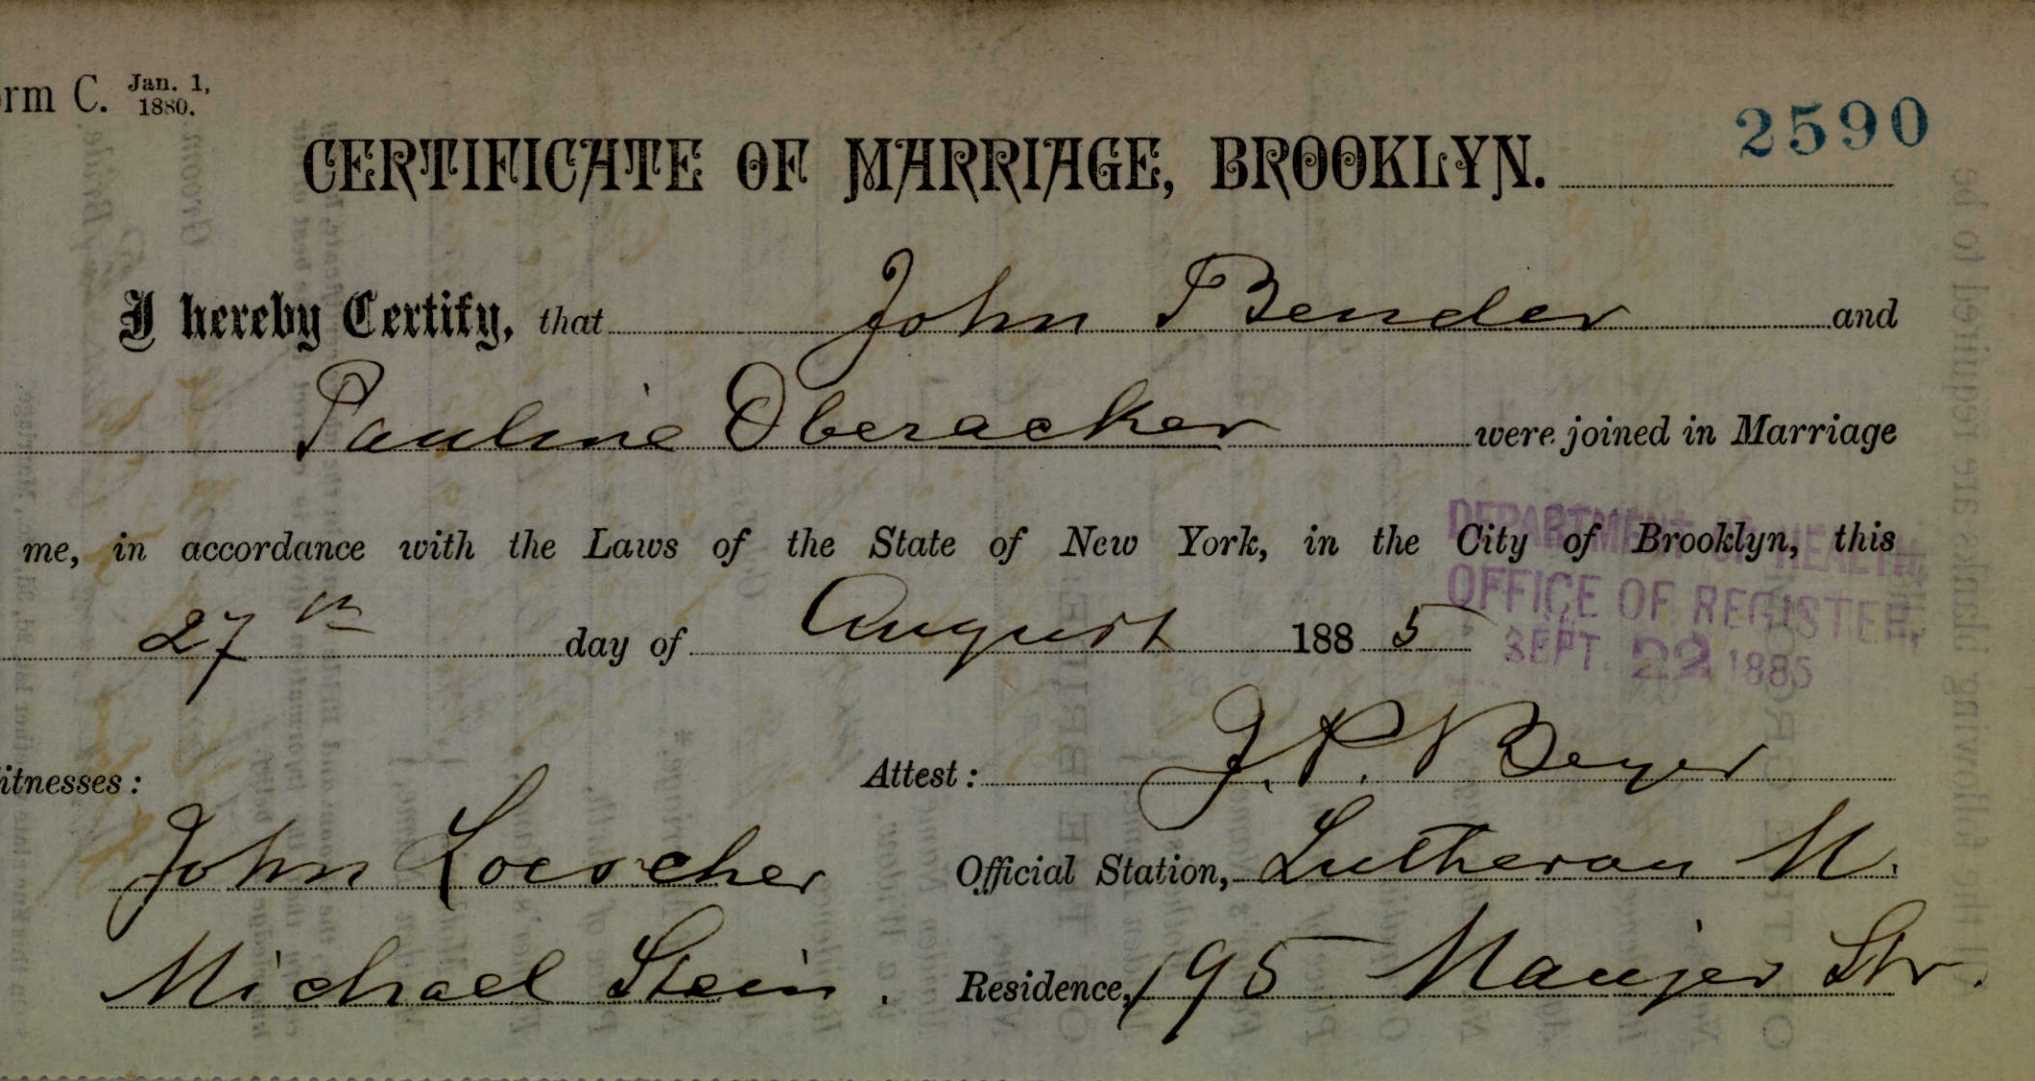 orm C. Jan. 1, 1880.
2590
CERTIFICATE OF MARRIAGE, BROOKLYN.
I hereby Certify, that John Bender and
Pauline Oberacker were joined in Marriage
me, in accordance with the Laws of the State of New York, in the City of Brooklyn, this
27th day of August 1885
DEPARTMENT OF HEALTH,
OFFICE OF REGISTER,
SEPT. 22 1885
itnesses: Attest: J. P. Beyer
John Loescher Official Station, Lutheran M.
Michael Stein. Residence, 195 Maujer Str.